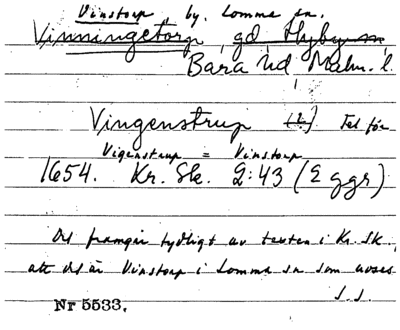 Vinstorp by. Lomma sn.
Vinningetorp, gd, Hyby sn
Bara hd Malm. l.
Vingenstrup (!) Fel för
Vigenstrup = Vinstorp
1654. Kr. Sk. 2:43 (2 ggr)
Det framgår tydligt av texten i Kr. Sk.,
att det är Vinstorp i Lomma sn som avses
J.J.
Nr 5533.